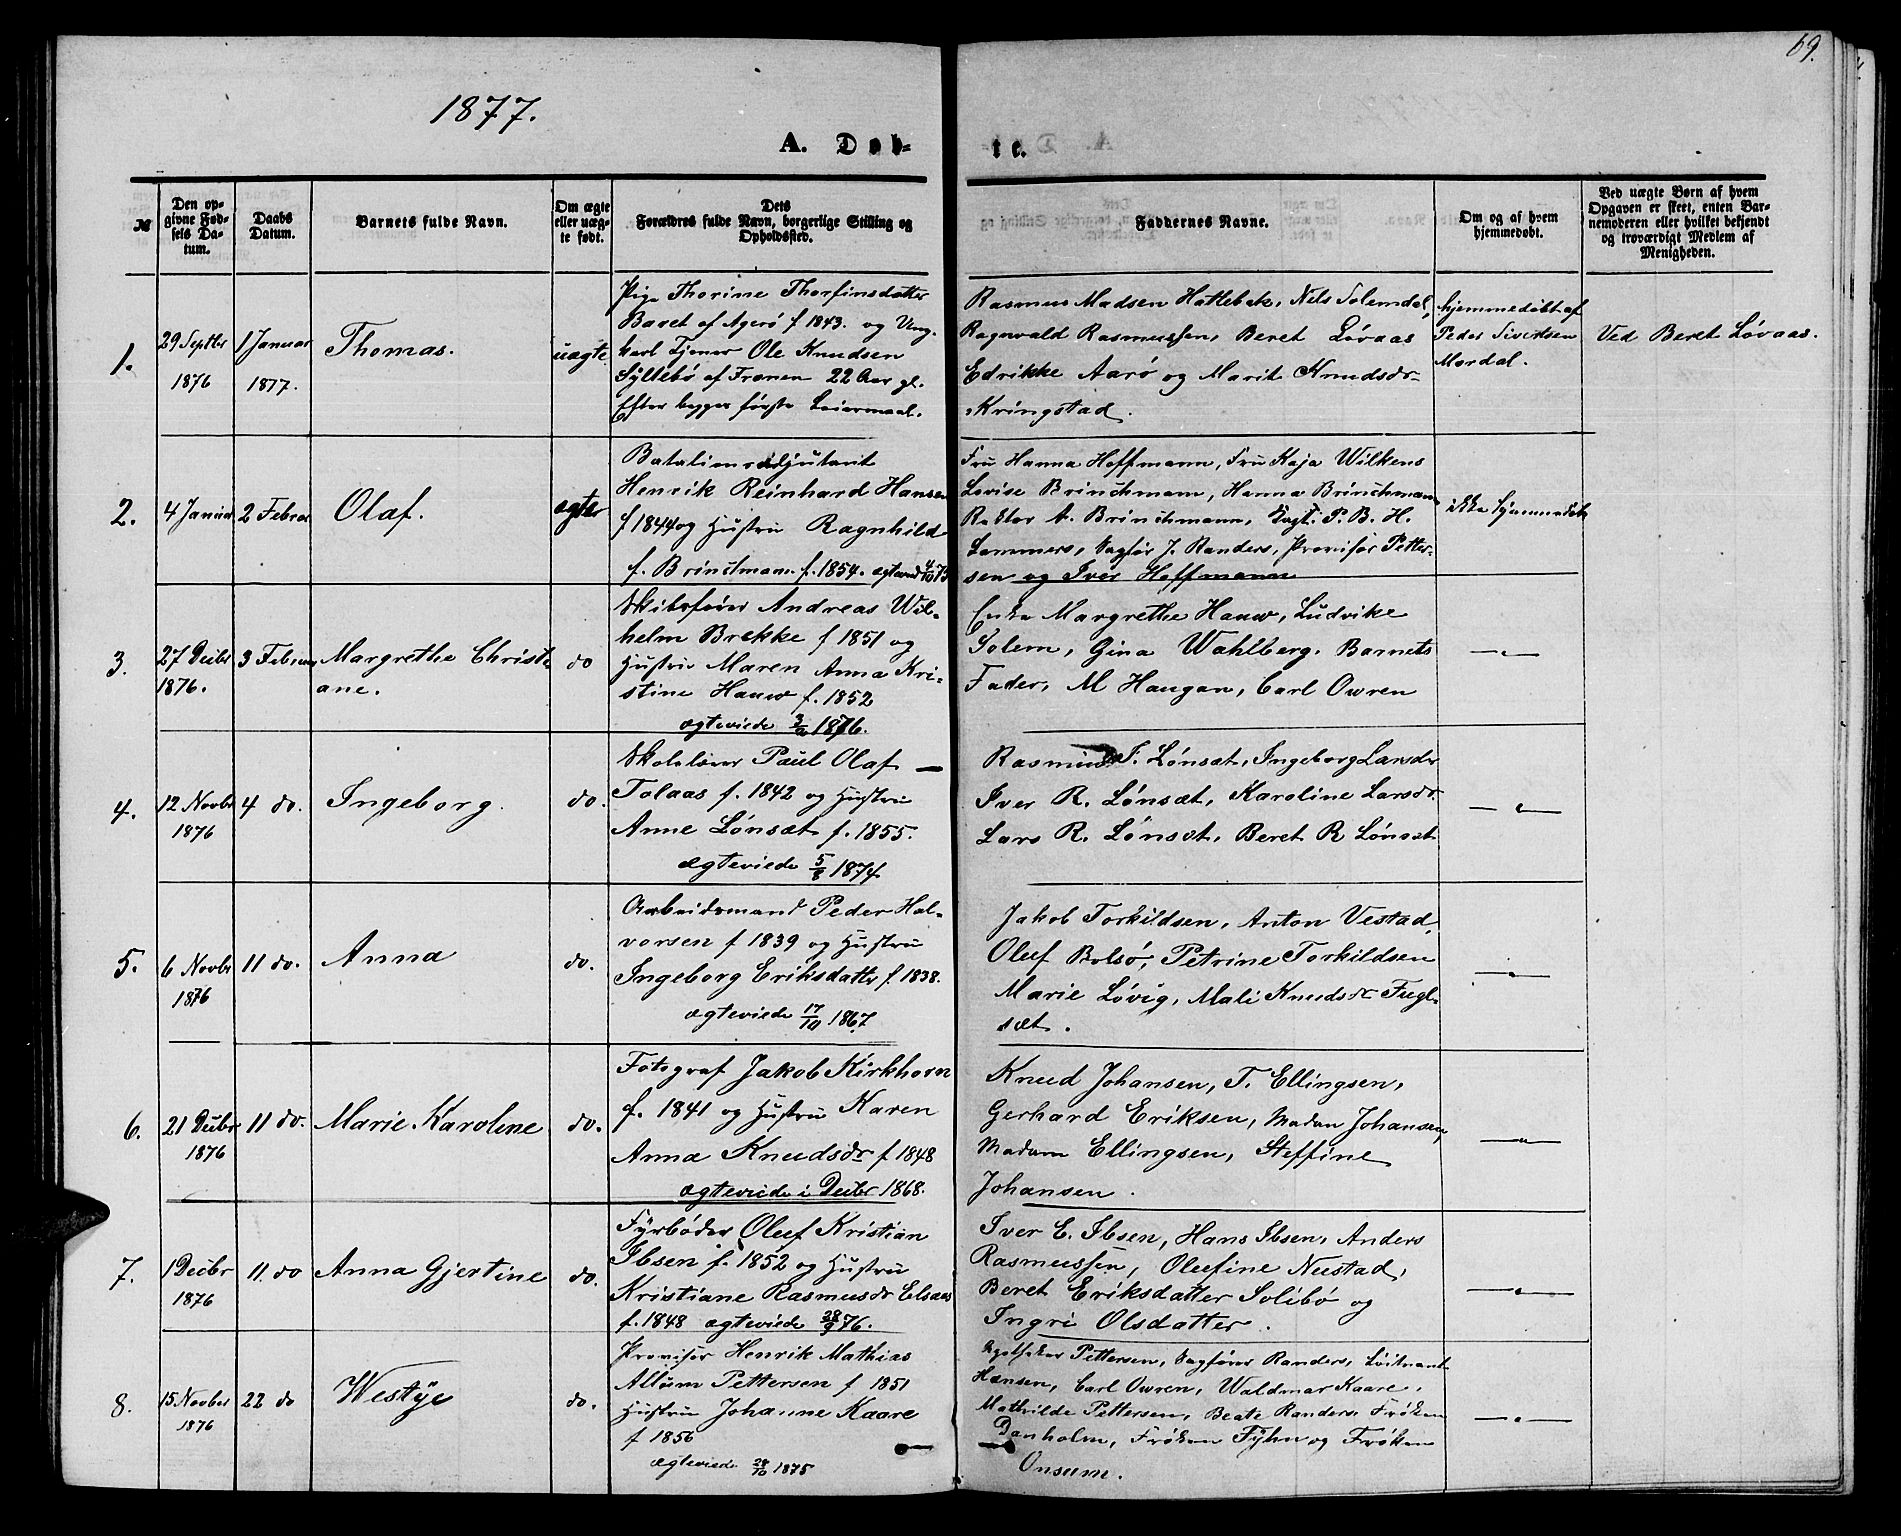 69.
1877.
A. Døb-
te.
№
Den op-
givne Fød-
sels Da-
tum.
Daabs
Datum.
Barnets fulde Navn.
Om ægte
eller uæg-
te født.
Dets
Forældres fulde Navn, borgerlige Stilling og
Opholdssted.
Faddernes Navne.
Om og af hvem
hjemmedøbt.
Ved uægte Børn af hvem
Opgaven er skeet, enten Bar-
nemoderen eller hvilket bekjendt
og troværdigt Medlem af
Menigheden.
1.
29 Septbr
1876
1 Januar
1877.
Thomas.
uægte
Pige Thorine Thorfinsdatter
Baret af Agerø f 1843. og Ung-
karl Tjener Ole Knudsen
Syltebø af Frænen 22 Aar gl.
Efter begges første Leiermaal.
Rasmus Madsen Hatlebak, Nels Solemdal,
Ragnvald Rasmussen, Beret Løvaas
Edrikke Aarø og Marit Knudsdr
Kringstad.
hjemmedøbt af
Peder Sivertsen
Mordal.
Ved Beret Løvaas.
2.
4 Januar
2 Februar
Olaf.
ægte
Batalionsadjutant
Henrik Reinhard Hansen
f 1844 og Hustru Ragnhild
f. Brinchmann f. 1854. ægtevied 4/10 75
Fru Hanna Hoffmann, Fru Kaja Wilkens
Lovise Brinchmann, Hanna Brinchmann
Rektor A. Brinchmann, Capt. P. B. H.
Lammers, Sagfør J. Randers, Provisor Petter-
sen og Iver Hoffmann
ikke hjemmedøbt
3.
27 Decbr
1876.
3 Februar
Margrethe Christi-
ane.
do
Skibsfører Andreas Wil-
helm Brekke f 1851 og
Hustru Maren Anna Kri-
stine Hauw f. 1852
ægteviede 3/ 1876.
Enke Margrethe Hauw, Ludvike
Solem, Gina Wahlberg. Barnets
Fader, M Haugan, Carl Owren
—"—
4.
12 Novbr
1876
4 do.
Ingeborg.
do.
Skolelærer Paul Olaf
Tolaas f. 1842 og Hustru
Anne Lønsæt f. 1855.
ægteviede 5/8 1874
Rasmus I. Lønsæt, Ingeborg Larsdr
Iver R. Lønsæt, Karoline Larsdr.
Lars R. Lønsæt, Beret R Lønsæt
—"—
5.
6 Novbr
1876
11 do.
Anna
do.
Arbeidsmand Peder Hal-
vorsen f 1839 og Hustru
Ingeborg Eriksdatter f. 1838.
ægteviede 17/10 1867
Jakob Torkildsen, Anton Vestad,
Oluf Bolsø, Petrine Torkildsen
Marie Løvig, Mali Knudsdr Fugl-
sæt.
—"—
6.
21 Decbr
1876
11 do.
Marie Karoline
do.
Fotograf Jakob Kirkhorn
f. 1841 og Hustru Karen
Anna Knudsdr f 1848
ægteviede i Decbr 1868.
Knud Johansen, T. Ellingsen,
Gerhard Eriksen, Madam Johansen,
Madam Ellingsen, Steffine
Johansen.
—"—
7.
1 Decbr
1876
11 do
Anna Gjertine
do.
Fyrbøder Oluf Kristian
Ibsen f. 1852 og Hustru
Kristiane Rasmusdr Elsaas
f. 1848 ægteviede 28/9 76.
Iver E. Ibsen, Hans Ibsen, Anders
Rasmussen, Olufine Neustad,
Beret Eriksdatter Solibø og
Ingri Olsdatter.
—"—
8.
15 Novber
1876
22 do
Westye
do.
Provisor Henrik Mathias
Allum Pettersen f 1851
Hustru Johanne Kaare
f 1856
ægteviede 28/10 1875
Apotheker Pettersen, Sagfører Randers, Løitnant
Hansen, Carl Owren, Waldmar Kaare,
Mathilde Pettersen, Beate Randers, Frøken
Danholm, Frøken Tyhn og Frøken
Onsum.
—"—